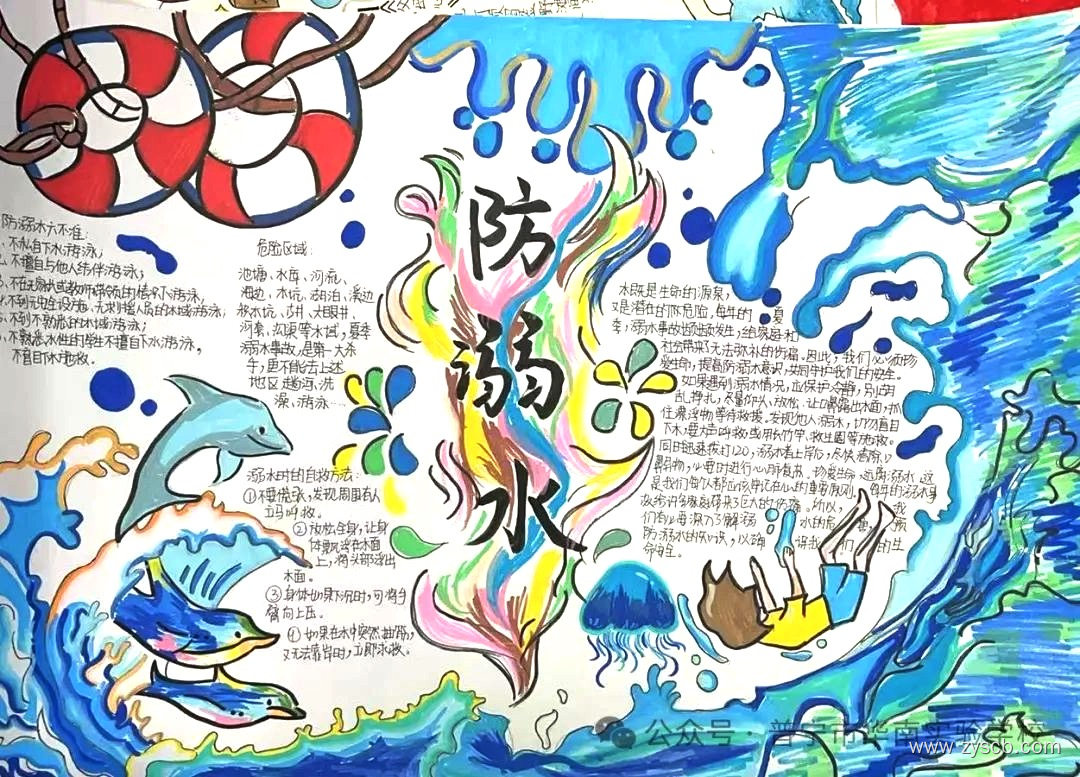 防溺水
防溺水六不准:
、不私自下水游泳;
、不擅自与他人结伴游泳;
不到无安全设施、无救援人员的水域游泳;
、不到不熟悉的水域游泳;
、不熟悉水性的学生不擅自下水游泳,
不擅自下水施救。
危险区域:
池塘、水库、河流、
海边、水坑、湖泊、溪边
大眼井、
河套、沟渠等水域,夏季
溺水事故,是第一大杀
手,更不能去上述
地区趟河、洗
澡、游泳…
溺水时的自救方法:
①不要慌张,发现周围有人
立马呼救。
②放松全身,让身
体飘浮在水面
上,将头部浮出
水面。
③身体如果下沉时,可将手
臂向上压。
④如果在水中突然抽筋,
又无法靠岸时,立即求救。
水既是生命的源泉,
又是潜在的 危险,每年的 夏
季,溺水事故 发生,给家庭和
社会带来了无法弥补的伤痛。因此,我们必须珍
爱生命,提高防溺水意识,共同守护我们的安全。
如果遇到溺水情况,应保护冷静,别
乱挣扎,尽量仰头,放松,让口鼻露出水面,抓
住漂浮物等待救援。发现他人溺水,切勿盲目
下水,要大声呼救,或用长竹竿、救生圈等施救。
同时迅速拨打120,溺水者上岸后,尽快清除
鼻异物,必要时进行心肺复苏。珍爱生命,远离溺水,这
是我们每个人都应该牢记在心的重要原则。每年的溺水事
故给许多家庭带来了巨大的伤痛。所以, 我
们有必要深刻了解溺 水的危
防溺水的知识,以确 保我 们 的生
命安全。
公众号·普宁市华南实验学校
www.zyscb.com